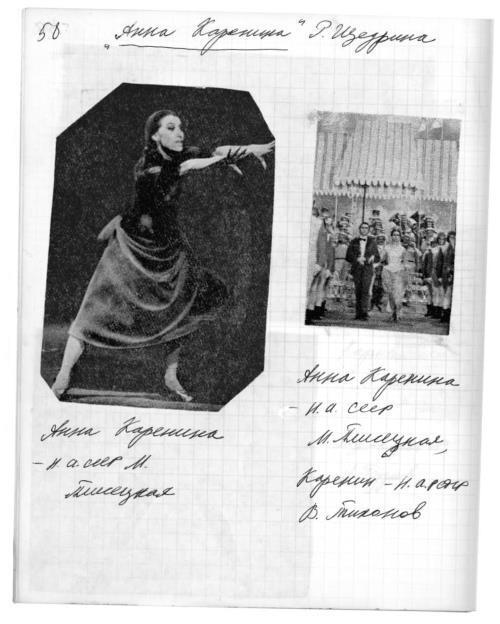 50 "Анна Каренина" Р. Щедрина
Анна Каренина
- н.а. СССР М.
Плисецкая
Анна Каренина
- н.а. СССР
М. Плисецкая,
Каренин - н.а. РСФСР
В. Тихонов